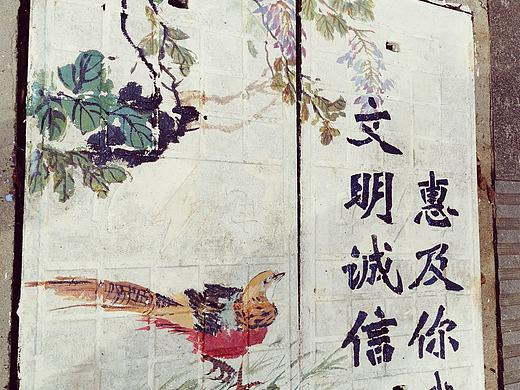 文明诚信
惠及你